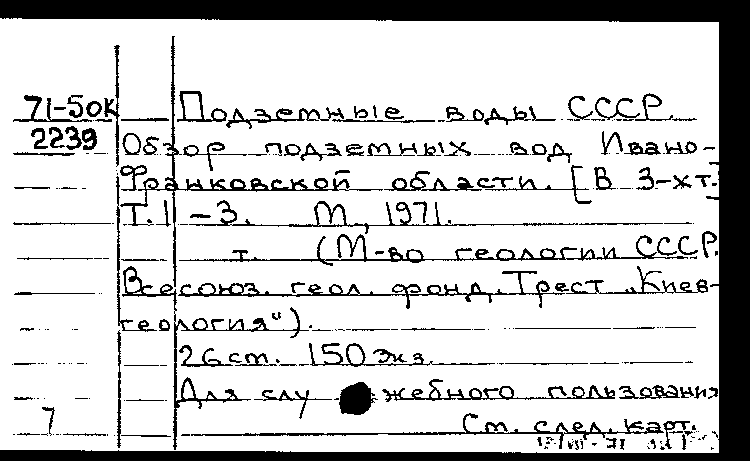 71-50к Подземные воды СССР.
2239 Обзор подземных вод Ивано-
Франковской области. [В 3-х т.]
Т. 1 - 3. М, 1971.
т. (М-во геологии СССР.
Всесоюз. геол. фонд. Трест „Киев-
геология").
26 ст. 150 экз.
Для служебного пользования
7 См. след. карт.